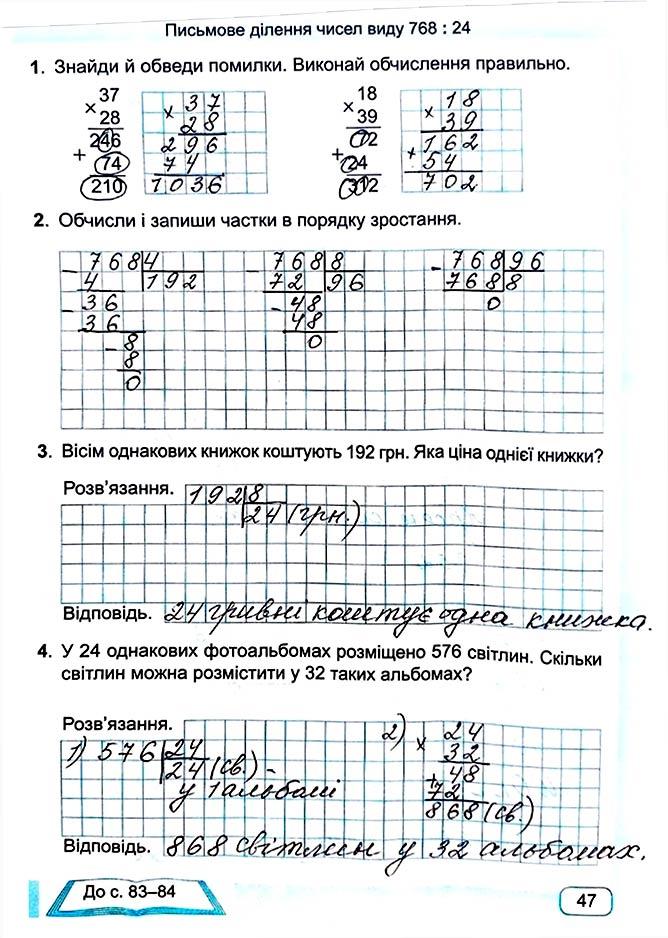 Письмове ділення чисел виду 768 : 24
1. Знайди й обведи помилки. Виконай обчислення правильно.
× 37
28
246
+ 74
210
× 37
28
296
74
1036
× 18
39
72
+ 24
312
× 18
39
162
+ 54
702
2. Обчисли і запиши частки в порядку зростання.
- 768 4
4 192
- 36
36
- 8
8
0
- 768 8
72 96
- 48
48
0
- 768 96
768 8
0
3. Вісім однакових книжок коштують 192 грн. Яка ціна однієї книжки?
Розв'язання. 192 8
24 (грн.)
Відповідь. 24 гривні коштує одна книжка.
4. У 24 однакових фотоальбомах розміщено 576 світлин. Скільки
світлин можна розмістити у 32 таких альбомах?
Розв'язання.
1) 576 24
24 (св.) -
у 1 альбомі
2) × 24
32
+ 48
72
868 (св.)
Відповідь. 868 світлин у 32 альбомах.
До с. 83–84
47